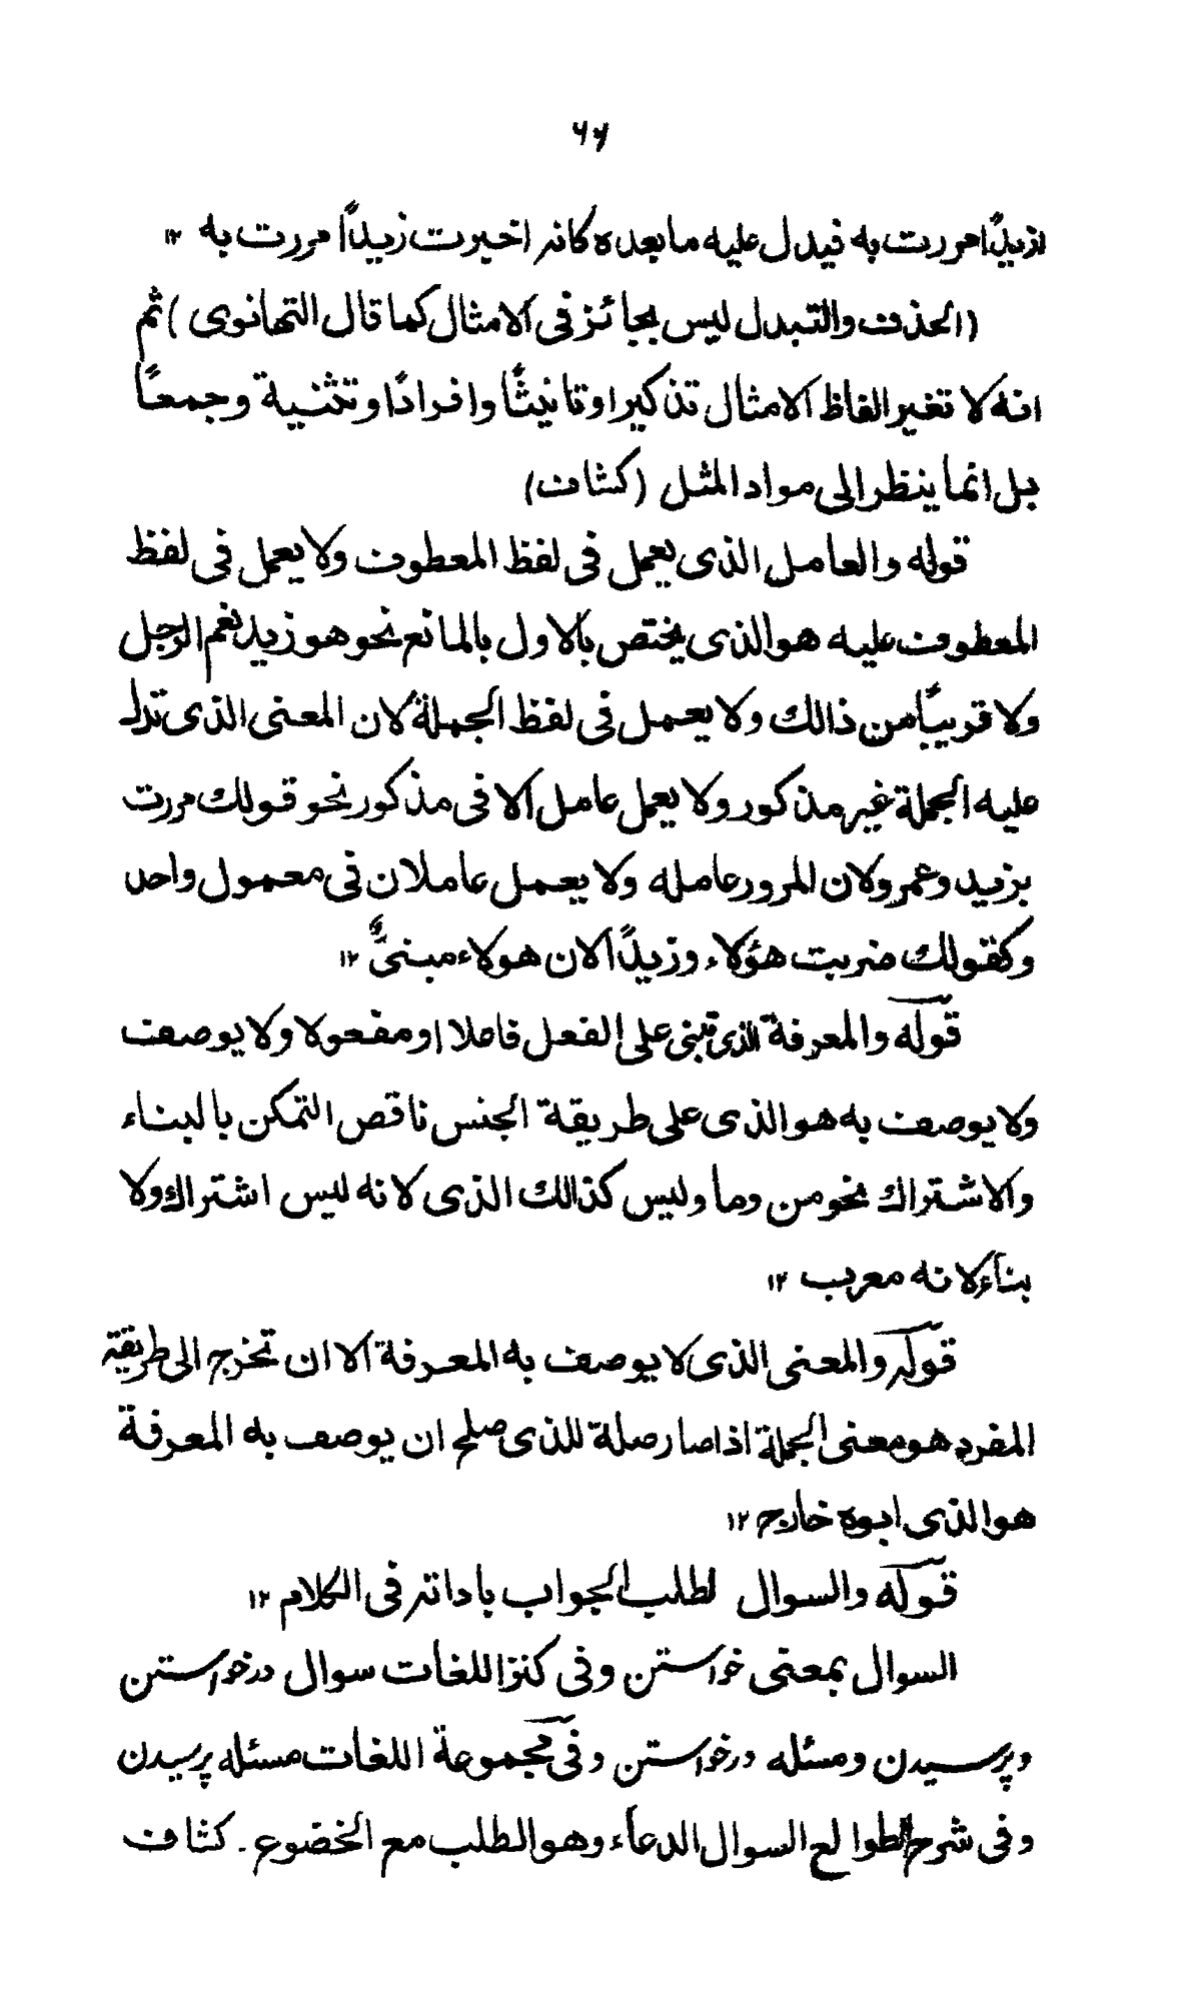 ۶۶
ازیدًا مررت به فیدل علیه ما بعده کانه اخبرت زیدًا مررت به ۱۲
(الحذف والتبدل لیس بجائز فی الامثال کما قال التهانوی) ثم
انه لا تغیر الفاظ الامثال تذکیرا وتانیثًا وافرادًا وتثنیة وجمعًا
بل انما ینظر الی مواد المثل (کشاف)
قوله والعامل الذی یعمل فی لفظ المعطوف ولا یعمل فی لفظ
المعطوف علیه هو الذی یختص بالاول بالمانع نحو هو زید نعم الرجل
ولا قریبًا من ذالك ولا یعمل فی لفظ الجملة لان المعنی الذی تدل
علیه الجملة غیر مذکور ولا یعمل عامل الا فی مذکور نحو قولك مررت
بزید وعمر ولان المرور عامله ولا یعمل عاملان فی معمول واحد
وکقولك ضربت هؤلاء وزیدًا الان هولاء مبنیٌّ ۱۲
قوله والمعرفة الذی تبنی علی الفعل فاعلا او مفعولا ولا یوصف
ولا یوصف به هو الذی علی طریقة الجنس ناقص التمکن بالبناء
والاشتراك نحو من وما ولیس کذالك الذی لانه لیس اشتراك ولا
بناء لانه معرب ۱۲
قوله والمعنی الذی لا یوصف به المعرفة الا ان تخرج الی طریقة
المفرد هو معنی الجملة اذا صار صلة للذی صلح ان یوصف به المعرفة
هو الذی ابوه خارج ۱۲
قوله والسوال لطلب الجواب باداته فی الکلام ۱۲
السوال بمعنی خواستن وفی کنز اللغات سوال درخواستن
وپرسیدن ومسئله درخواستن وفی مجموعة اللغات مسئله پرسیدن
وفی شرح الطوالع السوال الدعاء وهو الطلب مع الخضوع۔ کشاف